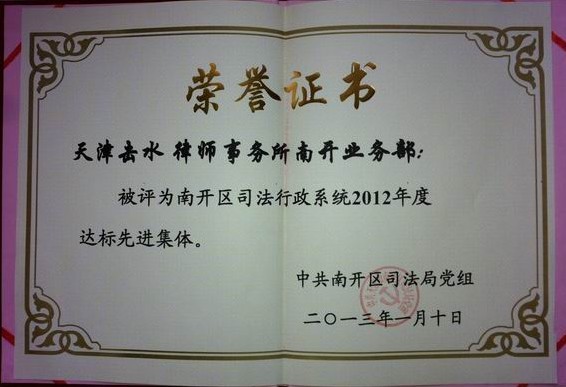 荣誉证书
天津击水律师事务所南开业务部:
被评为南开区司法行政系统2012年度
达标先进集体。
中共南开区司法局党组
二〇一三年一月十日